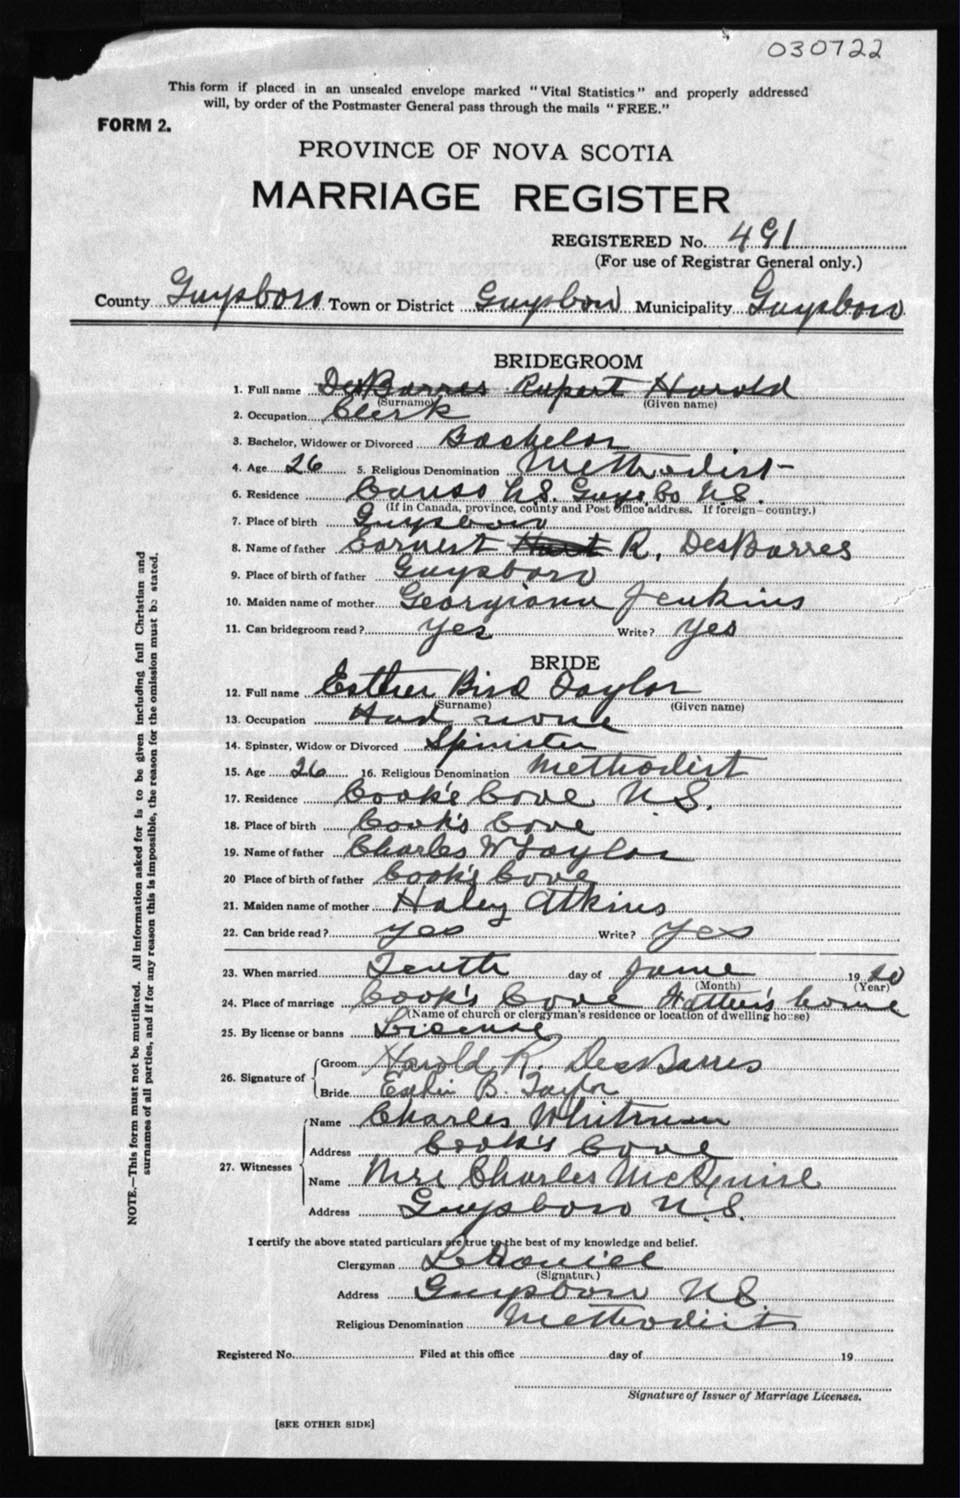 030722
This form if placed in an unsealed envelope marked "Vital Statistics" and properly addressed
will, by order of the Postmaster General pass through the mails "FREE."
FORM 2.
PROVINCE OF NOVA SCOTIA
MARRIAGE REGISTER
REGISTERED No. 491
(For use of Registrar General only.)
County Guysboro Town or District Guysboro Municipality Guysboro
BRIDEGROOM
1. Full name DesBarres Rupert Harold
(Surname) (Given name)
2. Occupation Clerk
3. Bachelor, Widower or Divorced Bachelor
4. Age 26 5. Religious Denomination Methodist
6. Residence Canso N.S. Guys. Co N.S.
(If in Canada, province, county and Post Office address. If foreign—country.)
7. Place of birth Guysboro
8. Name of father Earnest Hart R. DesBarres
9. Place of birth of father Guysboro
10. Maiden name of mother Georgiana Jenkins
11. Can bridegroom read? Yes Write? Yes
BRIDE
12. Full name Esther Bird Taylor
(Surname) (Given name)
13. Occupation Had none
14. Spinster, Widow or Divorced Spinster
15. Age 26 16. Religious Denomination Methodist
17. Residence Cook's Cove N.S.
18. Place of birth Cook's Cove
19. Name of father Charles W Taylor
20 Place of birth of father Cook's Cove
21. Maiden name of mother Haley Atkins
22. Can bride read? Yes Write? Yes
23. When married Tenth day of June 1920
(Month) (Year)
24. Place of marriage Cook's Cove Father's home
(Name of church or clergyman's residence or location of dwelling house)
25. By license or banns License
26. Signature of Groom Harold R. DesBarres
Bride B. Taylor
27. Witnesses Name Charles Whitman
Address Cook's Cove
Name Mrs Charles McGuire
Address Guysboro N.S.
I certify the above stated particulars are true to the best of my knowledge and belief.
Clergyman
(Signature)
Address Guysboro N.S.
Religious Denomination Methodist
Registered No. Filed at this office day of 19
Signature of Issuer of Marriage Licenses.
[SEE OTHER SIDE]
NOTE.—This form must not be mutilated. All information asked for is to be given including full Christian and
surnames of all parties, and if for any reason this is impossible, the reason for the omission must be stated.